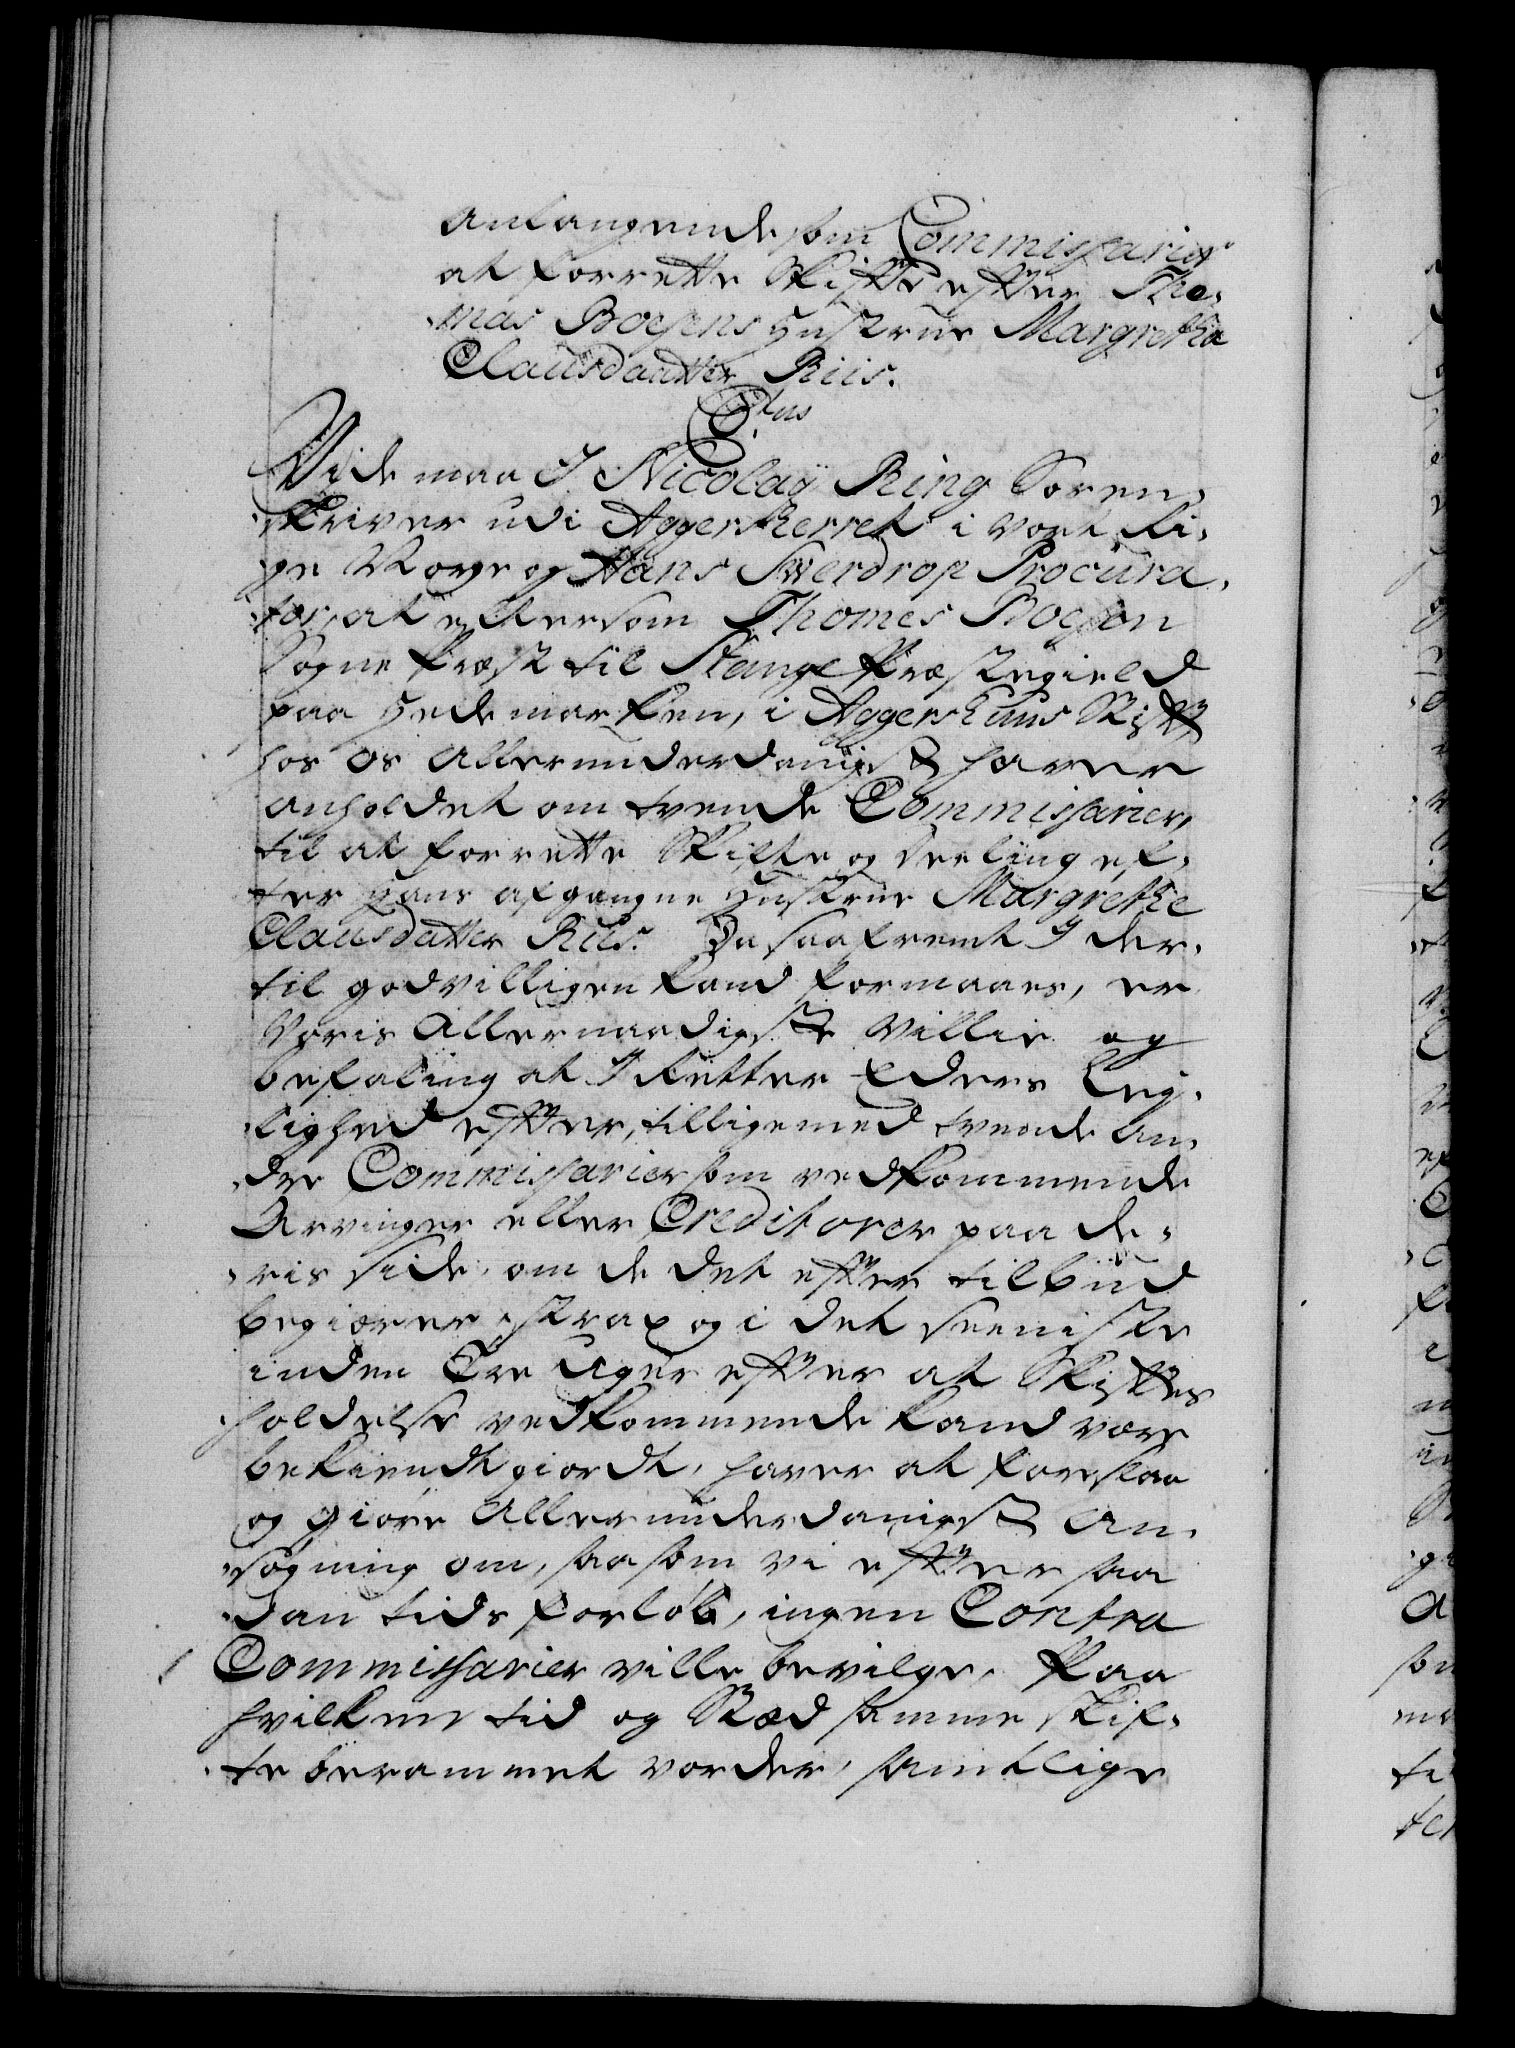 anlangende som Commissarier
at forrette Skifte efter Tho-
mas Boesens Hustrue Margretha
Clausdaatter Riis.
Vide maa I Nicolaÿ Ring Soren-
skriver udi Aggersherret i vort Ri-
ge Norge og Hans Swerdrop Procura-
tor, at eftersom Thomes Boesen
Sogne Præst til Stange Præstegield
paa Hedemarken, i Aggershuus Stift
hos os allerunderdanigst haver
anholdet om tvende Commissarier,
til at forrette Skifte og Deeling ef-
ter hans afgangne Hustrue Margrethe
Clausdatter Riis. Da saafremt I der-
til godvilligen kand formaaes, er
Voris Allernaadigste Villie og
befaling at I retter Eders Lej-
lighed efter, tilligemed tvende an-
dre Commissarier som vedkommende
Arvinger eller Creditorer paa de-
ris side, om de det efter tilbud
begiærer, strax og i det seeniste
inden Tre Uger efter at Skiftes
holdelse vedkommende kand være
bekiendtgiordt, haver at foreslaa
og giøre Allerunderdanigst An-
søgning om, saasom vi efter saa
dan tids forløb, ingen Contra
Commissarier ville bevilge. Paa
hvilken tid og Stæd samme skif-
te berammet vorder, samtlige